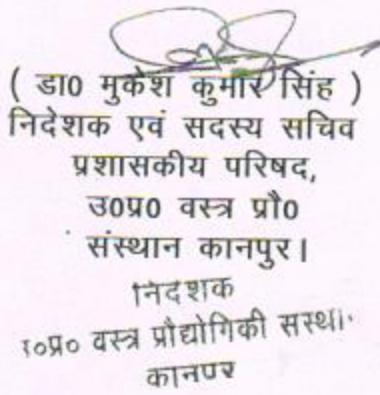 ( डा0 मुकेश कुमार सिंह )
निदेशक एवं सदस्य सचिव
प्रशासकीय परिषद,
उ0प्र0 वस्त्र प्रौ0
संस्थान कानपुर।
निदेशक
उ०प्र० वस्त्र प्रौद्योगिकी संस्थान
कानपुर